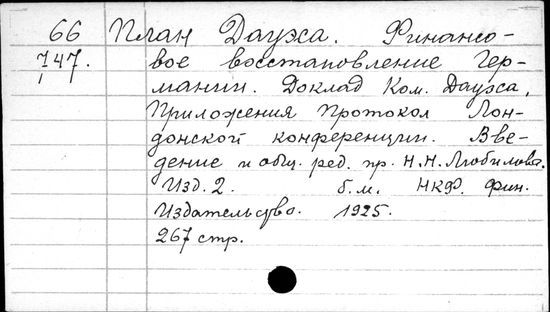 66 План Дауэса. Финансо-
747. вое восстановление Гер-
мании. Доклад Ком. Дауэса,
Приложения Протокол Лон-
донской конференции. Вве-
дение и общ. ред. пр. Н.Н. Любимова.
Изд. 2. б.м. НКФ. Фин.
Издательство. 1925.
267 стр.